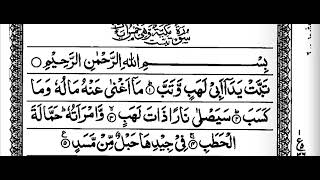 بِسْمِ اللهِ الرَّحْمٰنِ الرَّحِيْمِ
تَبَّتْ يَدَاۤ اَبِيْ لَهَبٍ وَّتَبَّ مَاۤ اَغْنٰى عَنْهُ مَالُهٗ وَمَا
كَسَبَ سَيَصْلٰى نَارًا ذَاتَ لَهَبٍ وَّامْرَاَتُهٗ حَمَّالَةَ
الْحَطَبِ فِيْ جِيْدِهَا حَبْلٌ مِّنْ مَّسَدٍ